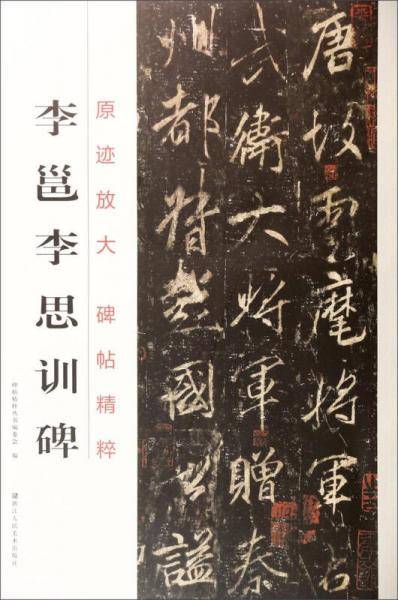 李邕李思训碑
原迹放大 碑帖精粹
碑帖精粹丛书编委会 编
浙江人民美术出版社
唐故云麾将军右
武卫大将军赠秦
州都督彭國公谥